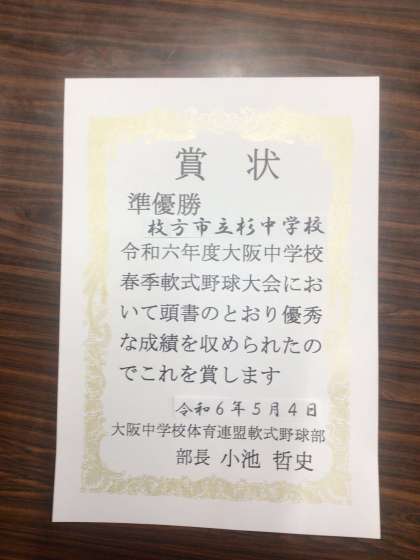 賞状
準優勝
枚方市立杉中学校
令和六年度大阪中学校
春季軟式野球大会にお
いて頭書のとおり優秀
な成績を収められたの
でこれを賞します
令和6年5月4日
大阪中学校体育連盟軟式野球部
部長 小池 哲史